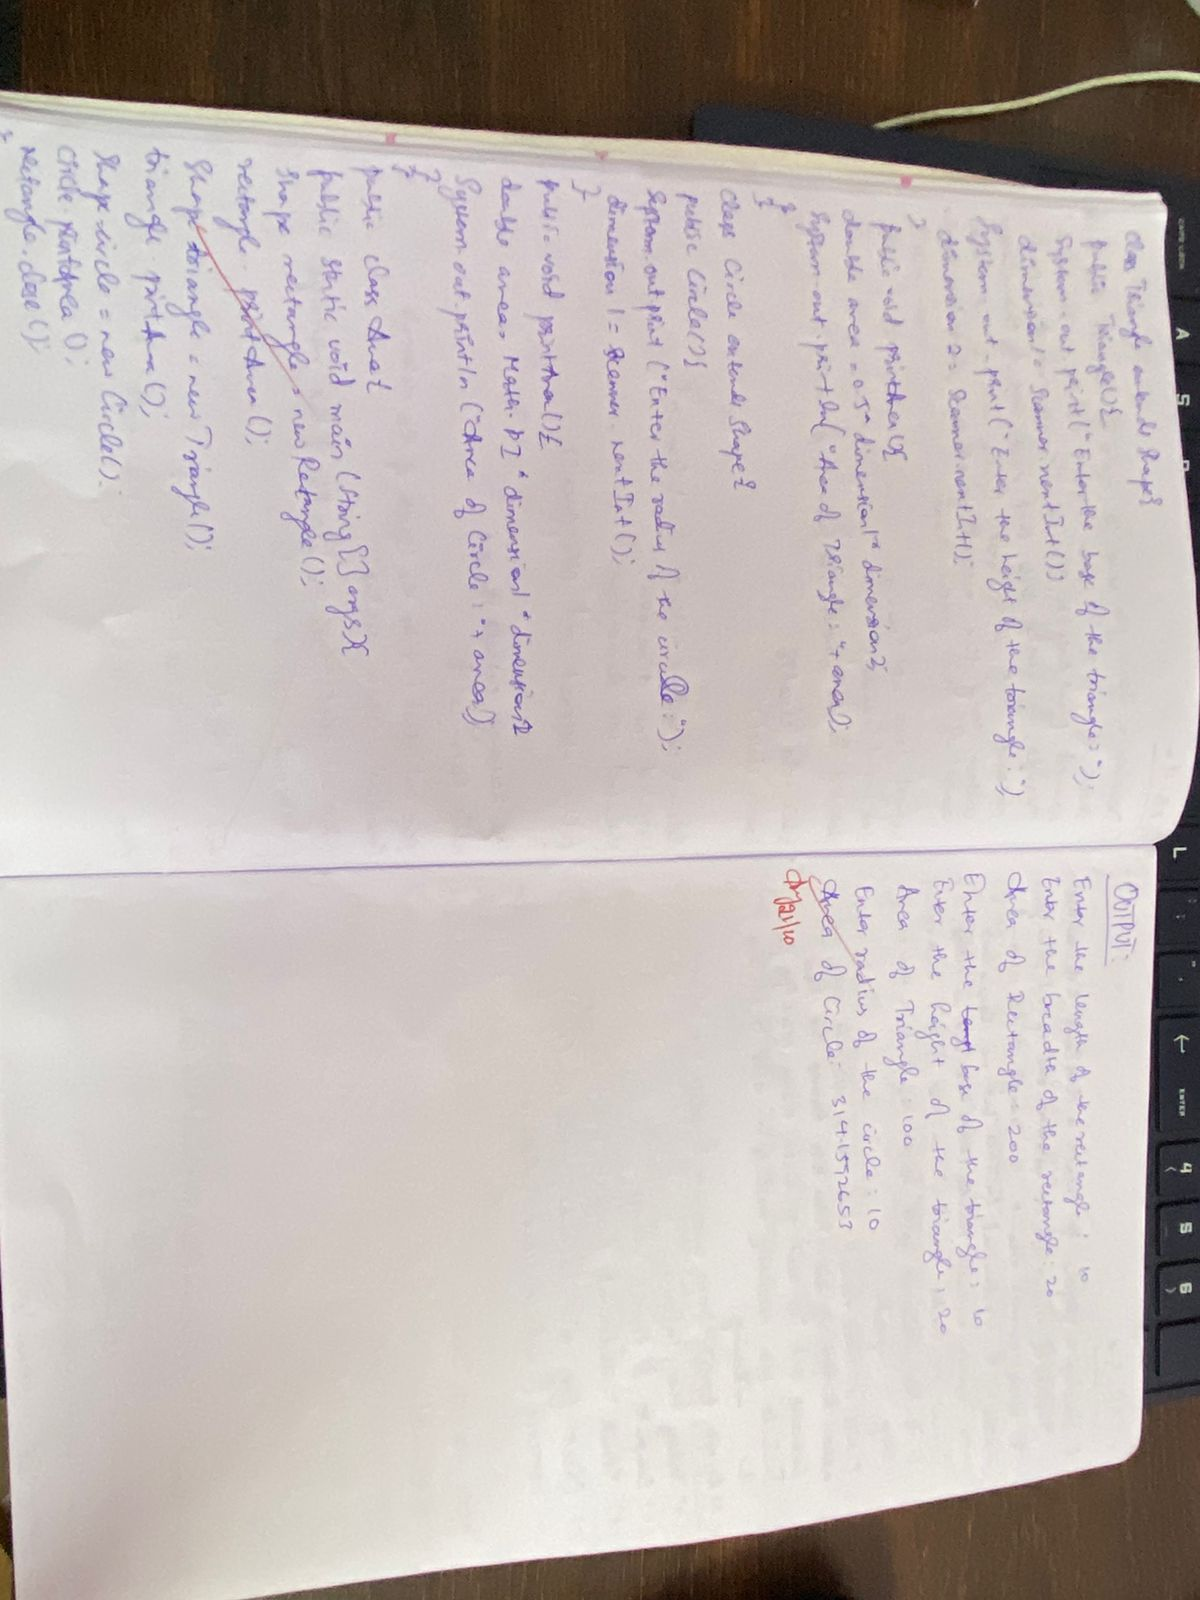 class Triangle extends Shape{
public Triangle(){
System.out.print("Enter the base of the triangle: ");
dimension1 = Scanner.nextInt();
System.out.print("Enter the height of the triangle: ");
dimension2 = Scanner.nextInt();
}
public void printArea(){
double area = 0.5* dimension1* dimension2;
System.out.println("Area of Triangle: "+ area);
}
}
class Circle extends Shape{
public Circle(){
System.out.print("Enter the radius of the circle: ");
dimension1 = Scanner.nextInt();
}
public void printArea(){
double area = Math.PI * dimension1 * dimension1
System.out.println("Area of Circle: "+ area)
}
}
public class Area{
public static void main(String[] args){
Shape rectangle = new Rectangle();
rectangle.printArea();
Shape triangle = new Triangle();
triangle.printArea();
Shape circle = new Circle();
circle.printArea();
rectangle.close();
}
OUTPUT:
Enter the length of the rectangle: 10
Enter the breadth of the rectangle: 20
Area of Rectangle: 200
Enter the base of the triangle: 10
Enter the height of the triangle: 20
Area of Triangle: 100
Enter radius of the circle: 10
Area of Circle: 314.1592653
21/10
CAPS LOCK
A
S
L
ENTER
4
5
6